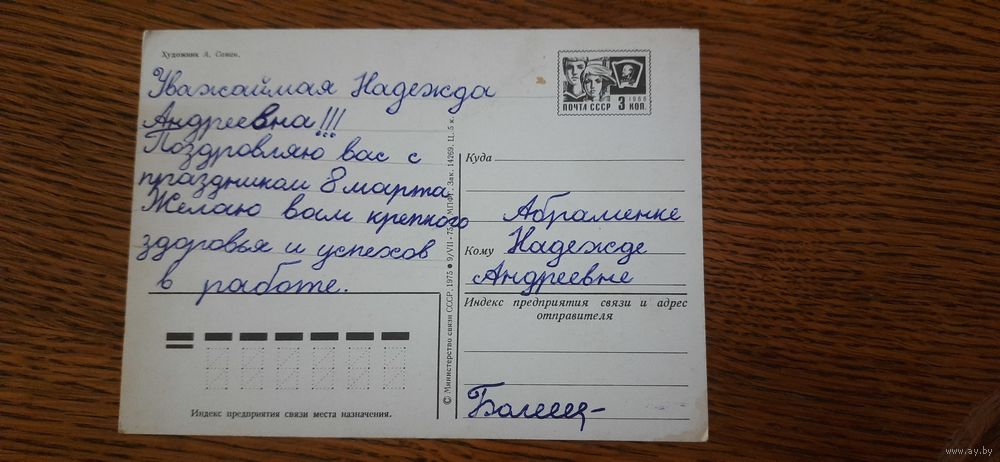 Художник А. Семен.
Уважаймая Надежда
Андреевна!!!
Поздровляю вас с
праздником 8 марта
Желаю вам крепкого
здоровья и успехов
в работе.
Индекс предприятия связи места назначения.
© Министерство связи СССР. 1975 ● 9/VII-75. МПФГ. Зак. 14269. Ц. 5 к.
1966
ПОЧТА СССР 3 КОП.
Куда
Абраменке
Кому Надежде
Андреевне
Индекс предприятия связи и адрес
отправителя
www.ay.by